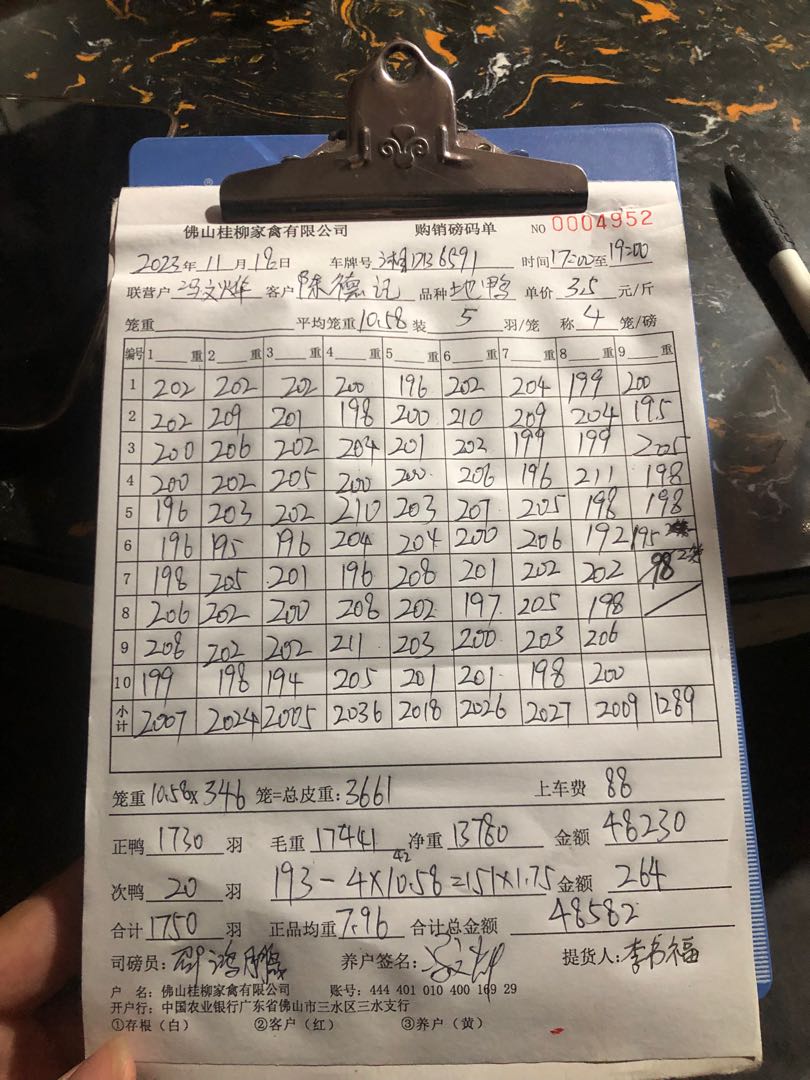 佛山桂柳家禽有限公司 购销磅码单 NO 0004952
2023年 11月 18日 车牌号 时间 17:00至 19:00
联营户 冯文烨 客户 陈德记 品种 地鸭 单价 3.5 元/斤
笼重 平均笼重 10.58 装 5 羽/笼 称 4 笼/磅
编号 1 重 2 重 3 重 4 重 5 重 6 重 7 重 8 重 9 重
1 202 202 202 200 196 202 204 199 200
2 202 209 201 198 200 210 209 204 195
3 200 206 202 204 201 203 199 199 205
4 200 202 205 200 200 206 196 211 198
5 196 203 202 210 203 207 205 198 198
6 196 195 196 204 204 200 206 192 195
7 198 205 201 196 208 201 202 202 98 2笼
8 206 202 200 208 202 197 205 198
9 208 202 202 211 203 200 203 206
10 199 198 194 205 201 201 198 200
小计 2007 2024 2005 2036 2018 2026 2027 2009 1289
笼重 10.58× 346 笼=总皮重: 3661 上车费 88
正鸭 1730 羽 毛重 17441 净重 13780 金额 48230
42
次鸭 20 羽 193-4×10.58=151×1.75 金额 264
合计 1750 羽 正品均重 7.96 合计总金额 48582
司磅员: 养户签名: 提货人: 李书福
户 名: 佛山桂柳家禽有限公司 账号: 444 401 010 400 169 29
开户行: 中国农业银行广东省佛山市三水区三水支行
①存根（白） ②客户（红） ③养户（黄）